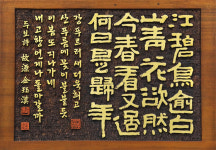 江碧鳥逾白
山靑花欲然
今春看又過
何日是歸年
강 푸르러 새 더욱 희고
산 푸름에 꽃이 불붙듯
이 봄또 지나가네
내 고향 언제나 돌아갈까
두보 詩